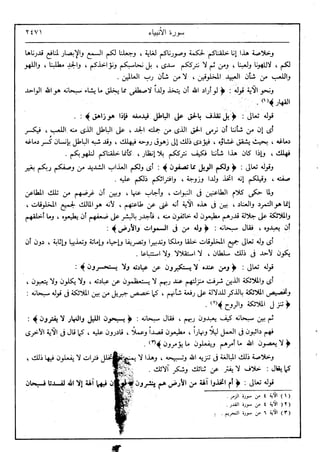 سورة الأنبياء ٢٤٧١
وخلاصة هذا إنا خلقناكم لحكمة وصورناكم لغاية ، وجعلنا لكم السمع والإبصار لمنافع قدرناها
لكم ، لاللهونا ولعبنا ، ومن ثم لا نترككم سدى ، بل نحاسبكم ونؤاخذكم ، والجد مطلبنا ، واللهو
واللعب من شأن العبيد المخلوقين ، لا من شأن رب العالمين .
ونحو الآية قوله : ﴿ لو أراد الله أن يتخذ ولداً لاصطفى مما يخلق ما يشاء سبحانه هو الله الواحد
القهار ﴾(١) .
قوله تعالى : ﴿ بل نقذف بالحق على الباطل فيدمغه فإذا هو زاهق ﴾ .
أي إن من شأننا أن نرمي الحق الذي من جملته الجد ، على الباطل الذي منه اللعب ، فيكسر
دماغه ، بحيث يشق غشاؤه ، فيؤدي ذلك إلى زهوق روحه فيهلك ، وقد شبه الباطل بإنسان كسر دماغه
فهلك ، وإذا كان هذا شأننا فكيف نترككم بلا إنظار ، كأنما خلقناكم لنلهو بكم .
وقوله تعالى : ﴿ ولكم الويل مما تصفون ﴾ : أي ولكم العذاب الشديد من وصفكم ربكم بغير
صفته ، وقيلكم إنه اتخذ ولداً وزوجة ، وافترائكم ذلكم عليه .
ولما حكى كلام الطاعنين في النبوات ، وأجاب عنها ، وبين أن غرضهم من تلك المطاعن
إنما هو التمرد والعناد ، بين في هذه الآية أنه غني عن طاعتهم ، لأنه هو المالك لجميع المخلوقات ،
والملائكة على جلالة قدرهم مطيعون له خائفون منه ، فأجدر بالبشر على ضعفهم أن يطيعوه ، وما أخلقهم
أن يعبدوه ، فقال سبحانه : ﴿ وله من في السموات والأرض ﴾ :
أي وله تعالى جميع المخلوقات خلقا وملكا وتدبيرا وتصريفا وإحياء وإماتة وتعذيبا وإثابة ، دون أن
يكون لأحد في ذلك سلطان ، لا استقلالا ولا استتباعا .
قوله تعالى : ﴿ ومن عنده لا يستكبرون عن عبادته ولا يستحسرون ﴾ :
أي والملائكة الذين شرفت منزلتهم عند ربهم لا يستعظمون عن عبادته ، ولا يكلون ولا يتعبون ،
وتخصيص الملائكة بالذكر للدلالة على رفعة شأنهم ، كما خصص جبريل من بين الملائكة في قوله سبحانه :
﴿ تنزل الملائكة والروح ﴾(٢) .
ثم بين سبحانه كيف يعبدون ربهم ، فقال سبحانه : ﴿ يسبحون الليل والنهار لا يفترون ﴾ :
فهم دائبون في العمل ليلاً ونهاراً ، مطيعون قصداً وعملاً ، قادرون عليه ، كما قال في الآية الأخرى
﴿ لا يعصون الله ما أمرهم ويفعلون ما يؤمرون ﴾(٣) .
وخلاصة ذلك المبالغة في تنزيه الله وتسبيحه ، وهذا لا يمنع تخلل فترات لا يفعلون فيها ذلك ،
كما يقال : خلاف لا يفتر عن ثنائك وشكر آلائك .
قوله تعالى : ﴿ أم اتخذوا آلهة من الأرض هم ينشرون لو كان فيهما آلهة إلا الله لفسدتا فسبحان
(١) الآية ٤ من سورة الزمر .
(٢) الآية ٤ من سورة القدر .
(٣) الآية ٦ من سورة التحريم .